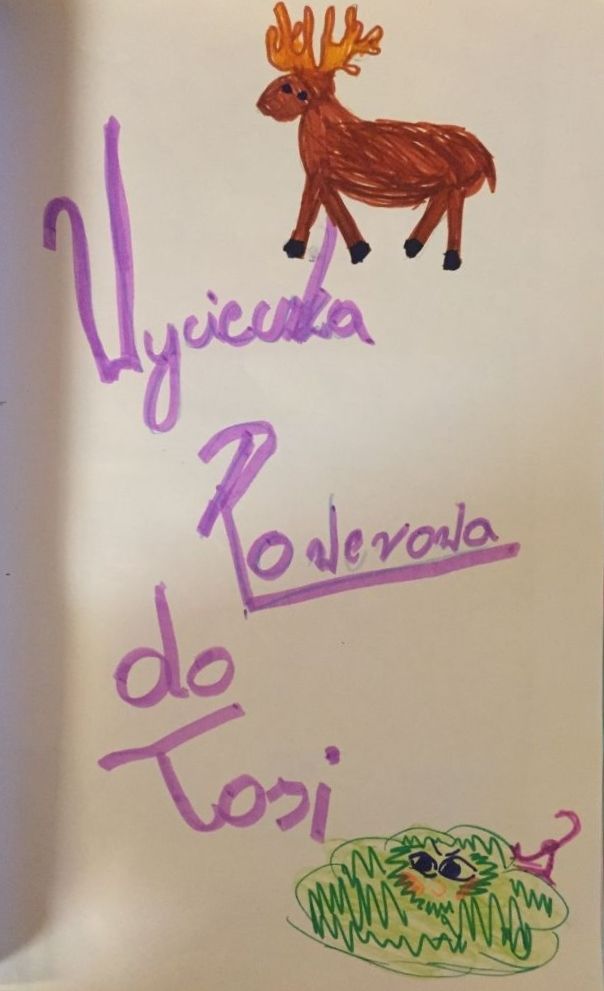 Wycieczka
Rowerowa
do
Tosi